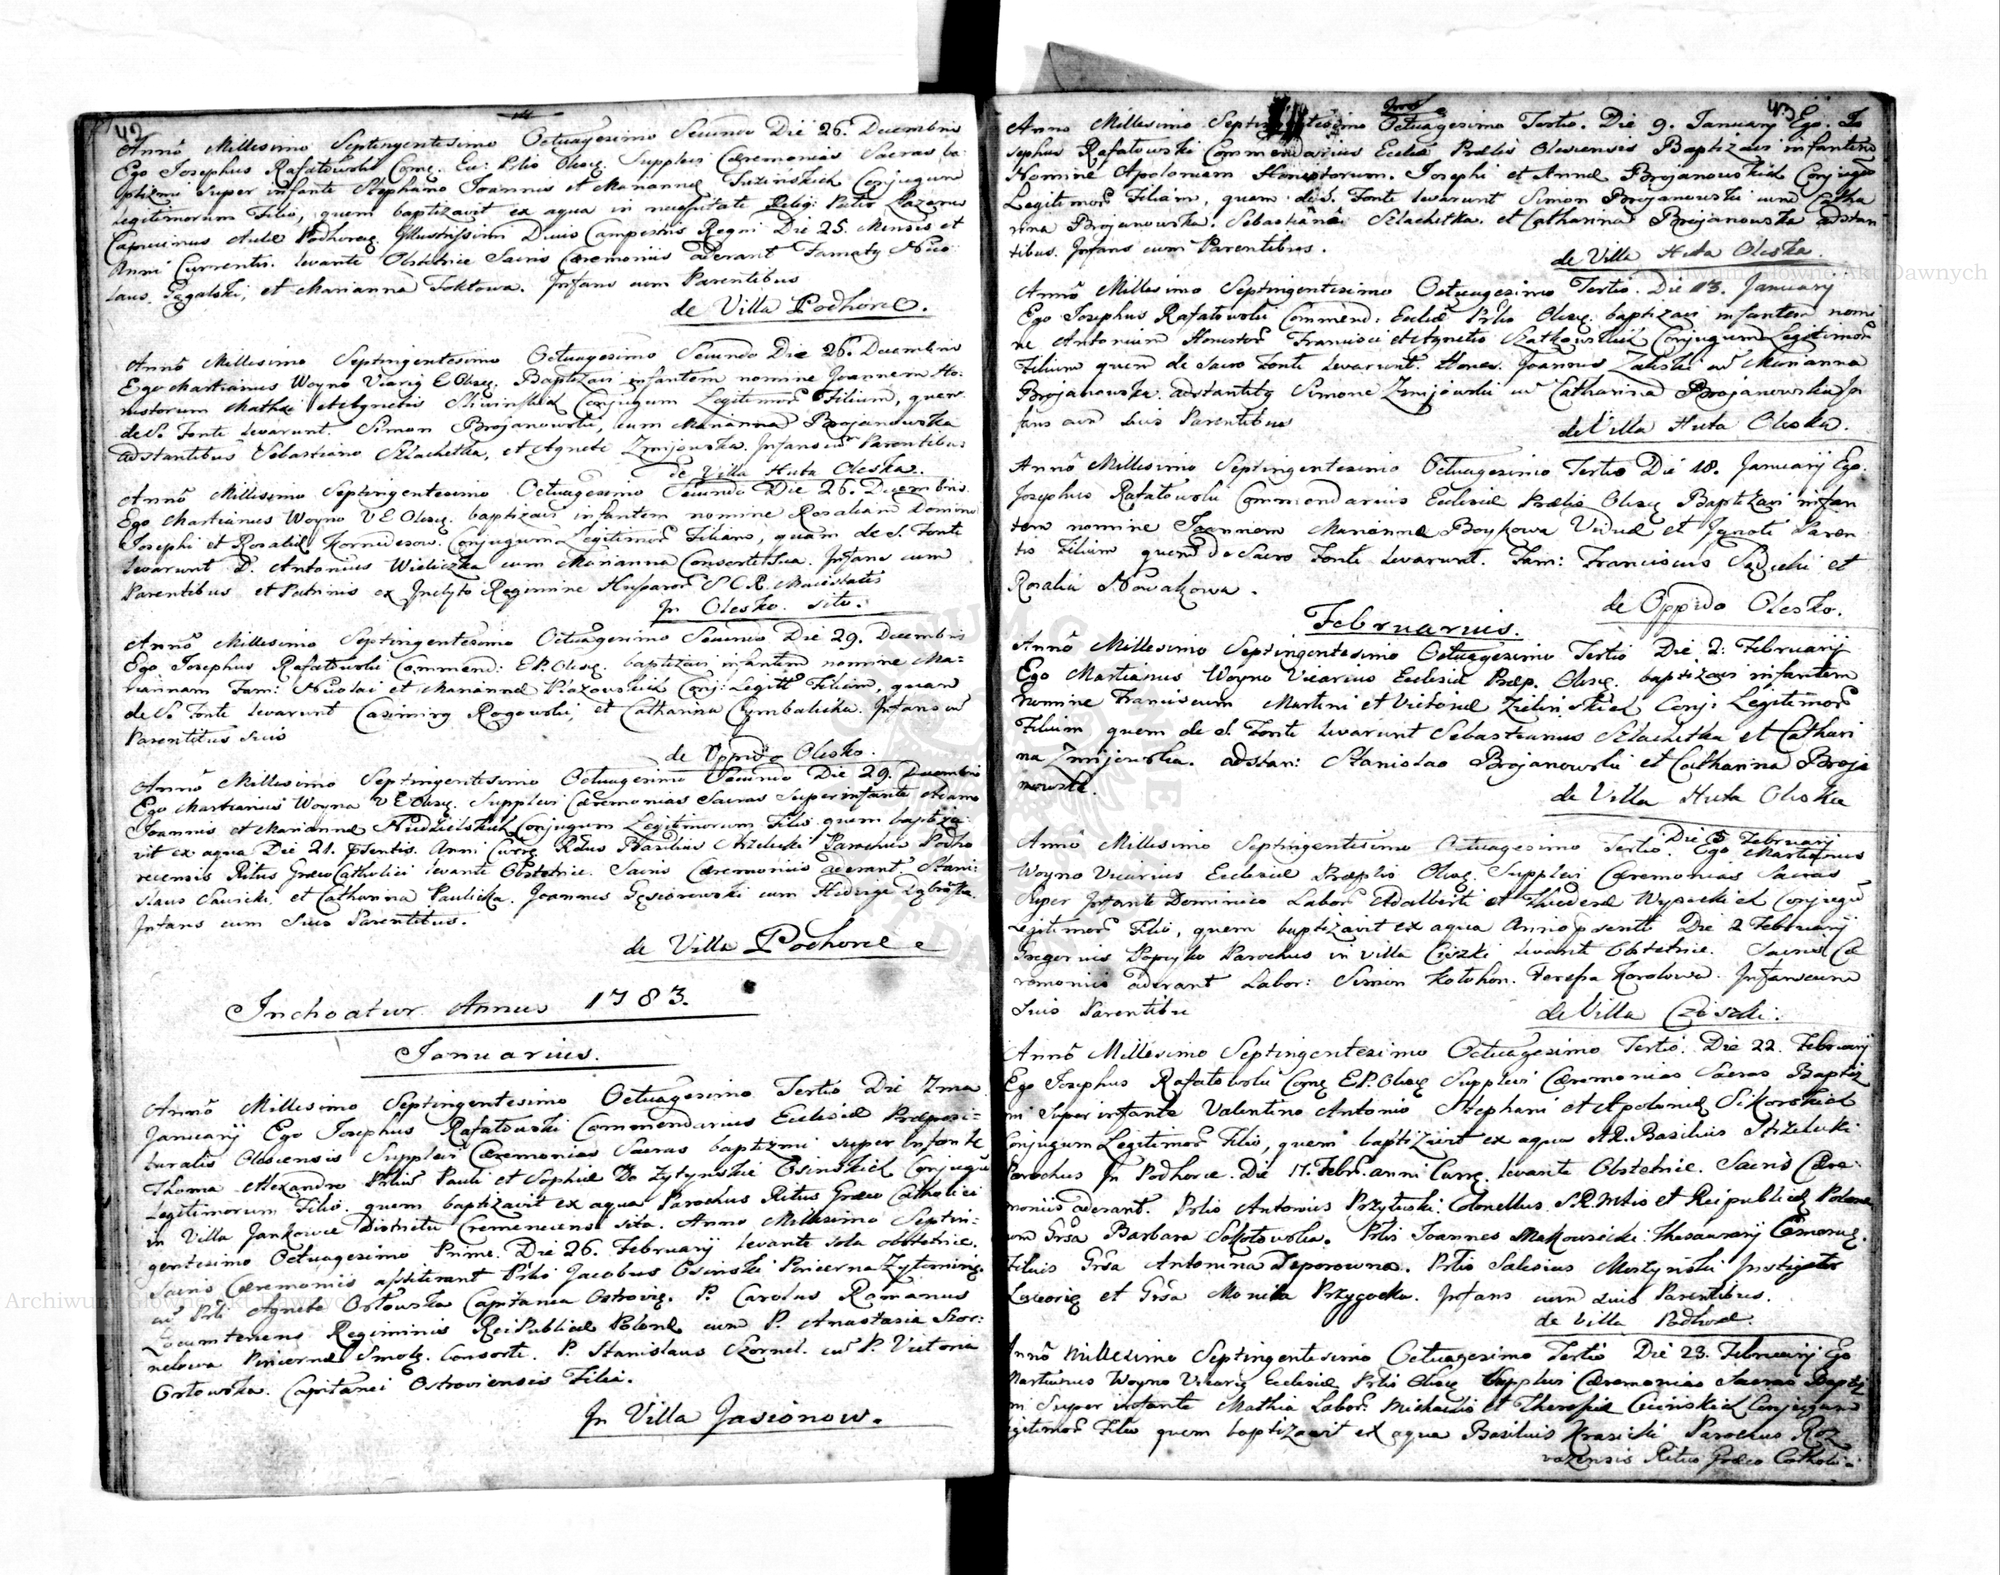 42
Anno Millesimo Septingentesimo Octuagesimo Secundo Die 26. Decembris
Ego Josephus Rafałowski Comę. Ec: Prlio Olesę. Supplevi Cæremonias Sacras ba-
ptizmi super infante Stephano Joannis et Mariannæ Conjugum
legitimorum Filio, quem baptizavit ex aqua in necessitate Relig: Petro
Capucinus Aulæ Podhorcę. Illustrissimi Ducis Campestris Regni Die 25. Mensis et
Anni Currentis. levante Obstetrice Sacris Cæremoniis aderant Famaty Nico-
laus et Marianna Infans cum Parentibus
de Villa Podhorce.
Anno Millesimo Septingentesimo Octuagesimo Secundo Die 26. Decembris
Ego Martianus Woyno Viarię E Olesę. Baptizavi infantem nomine Joannem Ho-
nestorum Mathæi et Agnetis Conjugum Legitimor Filium, quem
de S. Fonte levarunt. Simon Brojanowski, cum Marianna Brojanowska
adstantibus Sebastiano Szlachetka, et Agnete Zmijowska. Infans cu Parentibus
de Villa Huta Oleska.
Anno Millesimo Septingentesimo Octuagesimo Secundo Die 26. Decembris.
Ego Martianus Woyno V E Olesę. baptizavi infantem nomine Rosaliam Domino
Josephi et Rosaliæ Conjugum Legitimor Filiam, quam de S. Fonte
levarunt D. Antonius Wieliczka cum Marianna Consorte Sua. Infans cum
Parentibus et Patrinis ex Inclyto Regimine Husaror S C R. Maiestatis
In Olesko sito.
Anno Millesimo Septingentesimo Octuagesimo Secundo Die 29. Decembris
Ego Josephus Rafałowski Commend: E P. Olesę. baptizavi infantem nomine Ma-
riannam Fam: Nicolai et Mariannæ Conj: Legitt Filiam, quam
de S. Fonte levarunt Casimirę Rogowski, et Catharina Cymbalicka. Infans cu
Parentibus Suis
de Oppido Olesko.
Anno Millesimo Septingentesimo Octuagesimo Secundo Die 29. Decembris
Ego Martianus Woyno V E Olesę. Supplevi Cæremonias Sacras Super infante Adamo
Joannis et Mariannæ Conjugum Legitimorum Filio quem baptiza-
vit ex aqua Die 21. psentis Anni Currę. Rdus Basilius Strzelecki Parochus Podho
recensis Ritus Græco Catholici levante Obstetrice. Sacris Cæremoniis aderant Stani-
slaus et Catharina Paulicka. Joannes Gęsiorowski cum Hedvige
Infans cum Suis Parentibus.
de Villa Podhorce
Inchoatur Annus 1783.
Januarius.
Anno Millesimo Septingentesimo Octuagesimo Tertio Die 7ma
Januarij Ego Josephus Rafałowski Commendarius Ecclesiæ Præposi-
turalis Olescensis Supplevi Cæremonias Sacras baptizmi super Infante
Thoma Alexandro Prlium Pauli et Sophiæ De Zytynskie Osinskich Conjugu
Legitimorum Filio. quem baptizavit ex aqua Parochus Ritus Græco Catholici
in Villa Jankowce Districtu Cremenecensi sita. Anno Millesimo Septin-
gentesimo Octuagesimo Primo. Die 26. Februarij levante sola obstetrice.
Sacris Cæremoniis assisterant Prlis Jacobus Osinski Pincerna
cu Prli Agnete Orłowska Capitanea Ostrovię. P. Carolus Romanus
Locumtenens Regiminis Reipublicæ Polonæ cum P. Anastasia Szor-
nelowa Pincernæ Smolę. Consorte. P. Stanislaus Szornel. cu P. Victoria
Orłowska. Capitanei Ostroviensis Filia.
In Villa Jasionow.
43
Anno Millesimo Septingentesimo Octuagesimo Tertio. Die 9. Januarij Ego Jo
sephus Rafałowski Commendarius Ecclæ Prælis Olescensis Baptizavi infantem
Nomine Apoloniam Honestorum. Josephi et Annæ Brojanowskich Conjugu
Legitimor Filiam, quam de S. Fonte levarunt Simon Brojanowski cum Catha
rina Brojanowska. Sebastiano Szlachetka. et Catharina Brojanowska adstan
tibus. Infans cum Parentibus.
de Villa Huta Oleska.
Anno Millesimo Septingentesimo Octuagesimo Tertio. Die 13. Januarij
Ego Josephus Rafałowski Commend: Ecclæ Prlio Olesę. baptizavi infantem nomi
ne Antonium Honestor Francisci et Agnetis Conjugum Legitimor
Filium quem de Sacro Fonte levarunt. Hones. Joannes Zaleski cu Marianna
Brojanowska. adstantibę Simone Zmijowski cu Catharina Brojanowska In
fans cum Suis Parentibus
de Villa Huta Oleska.
Anno Millesimo Septingentesimo Octuagesimo Tertio Die 18. Januarij Ego.
Josephus Rafałowski Commendarius Ecclesiæ Prælis Olesę Baptizavi infan
tem nomine Joannem Mariannæ Boykowa Viduæ et Ignoti Paren
tis Filium quem de Sacro Fonte levarunt. Fam: Franciscus et
Rosalia Nowakowa.
de Oppido Olesko.
Februarius.
Anno Millesimo Septingentesimo Octuagesimo Tertio Die 2. Februarij
Ego Martianus Woyno Vicarius Ecclesiæ Præp. Olesę. baptizavi infantem
Nomine Franciscum Martini et Victoriæ Zielinskich Conj: Legitimor
Filium quem de S. Fonte levarunt Sebastianus Szlachetka et Cathari
na Zmijewska. adstan: Stanislao Brojanowski et Catharina Broja
nowska.
de Villa Huta Oleska
Anno Millesimo Septingentesimo Octuagesimo Tertio. Die 5 Februarij Ego Martianus
Woyno Vicarius Ecclesiæ Præplio Olesę. Supplevi Cæremonias Sacras
Super Infante Dominico Labor Adalberti et Wysockich Conjugu
Legitimor Filio, quem baptizavit ex aqua Anno psenti Die 2 Februarij
Gregorius Parochus in Villa Ciszki levante Obstetrice. Sacris Cæ
remoniis aderant Labor: Simon Kotohon. Teressa Korolowa. Infans cum
Suis Parentibus
de Villa Cziszki.
Anno Millesimo Septingentesimo Octuagesimo Tertio. Die 22. Februarij
Ego Josephus Rafałowski Comę E P. Olesę Supplevi Cæremonias Sacras Baptiz
mi Super infante Valentino Antonio Stephani et Apoloniæ Sikorskich
Conjugum Legitimor Filio, quem baptizavit ex aqua A R. Basilius Strzelecki
Parochus In Podhorce. Die 17. Febr: anni Currę. levante Obstetrice. Sacris Cære-
moniis aderant. Prlis Antonius Przyłuski Colonellus S. R. Mtis et Reipublicæ Polonæ
cum Grsa Barbara Sokołowska. Prlis Joannes Makowiecki Thesaurarij
Filius Grsa Antonina Prlis Salesius Instigator
et Grsa Monika Przygocka. Infans cum suis Parentibus.
de Villa Podhorce.
Anno Millesimo Septingentesimo Octuagesimo Tertio Die 23. Februarij Ego
Martianus Woyno Vicarię Ecclesiæ Prlis Olesę Supplevi Cæremonias Sacras Baptiz
mi Super infante Mathia Labor. Michaelis et Theressiæ Conjugum
Legitimor Filio quem baptizavit ex aqua Basilius Krasicki Parochus Roz
vazensis Ritus Græco Catholi-
Archiwum Główne Akt Dawnych